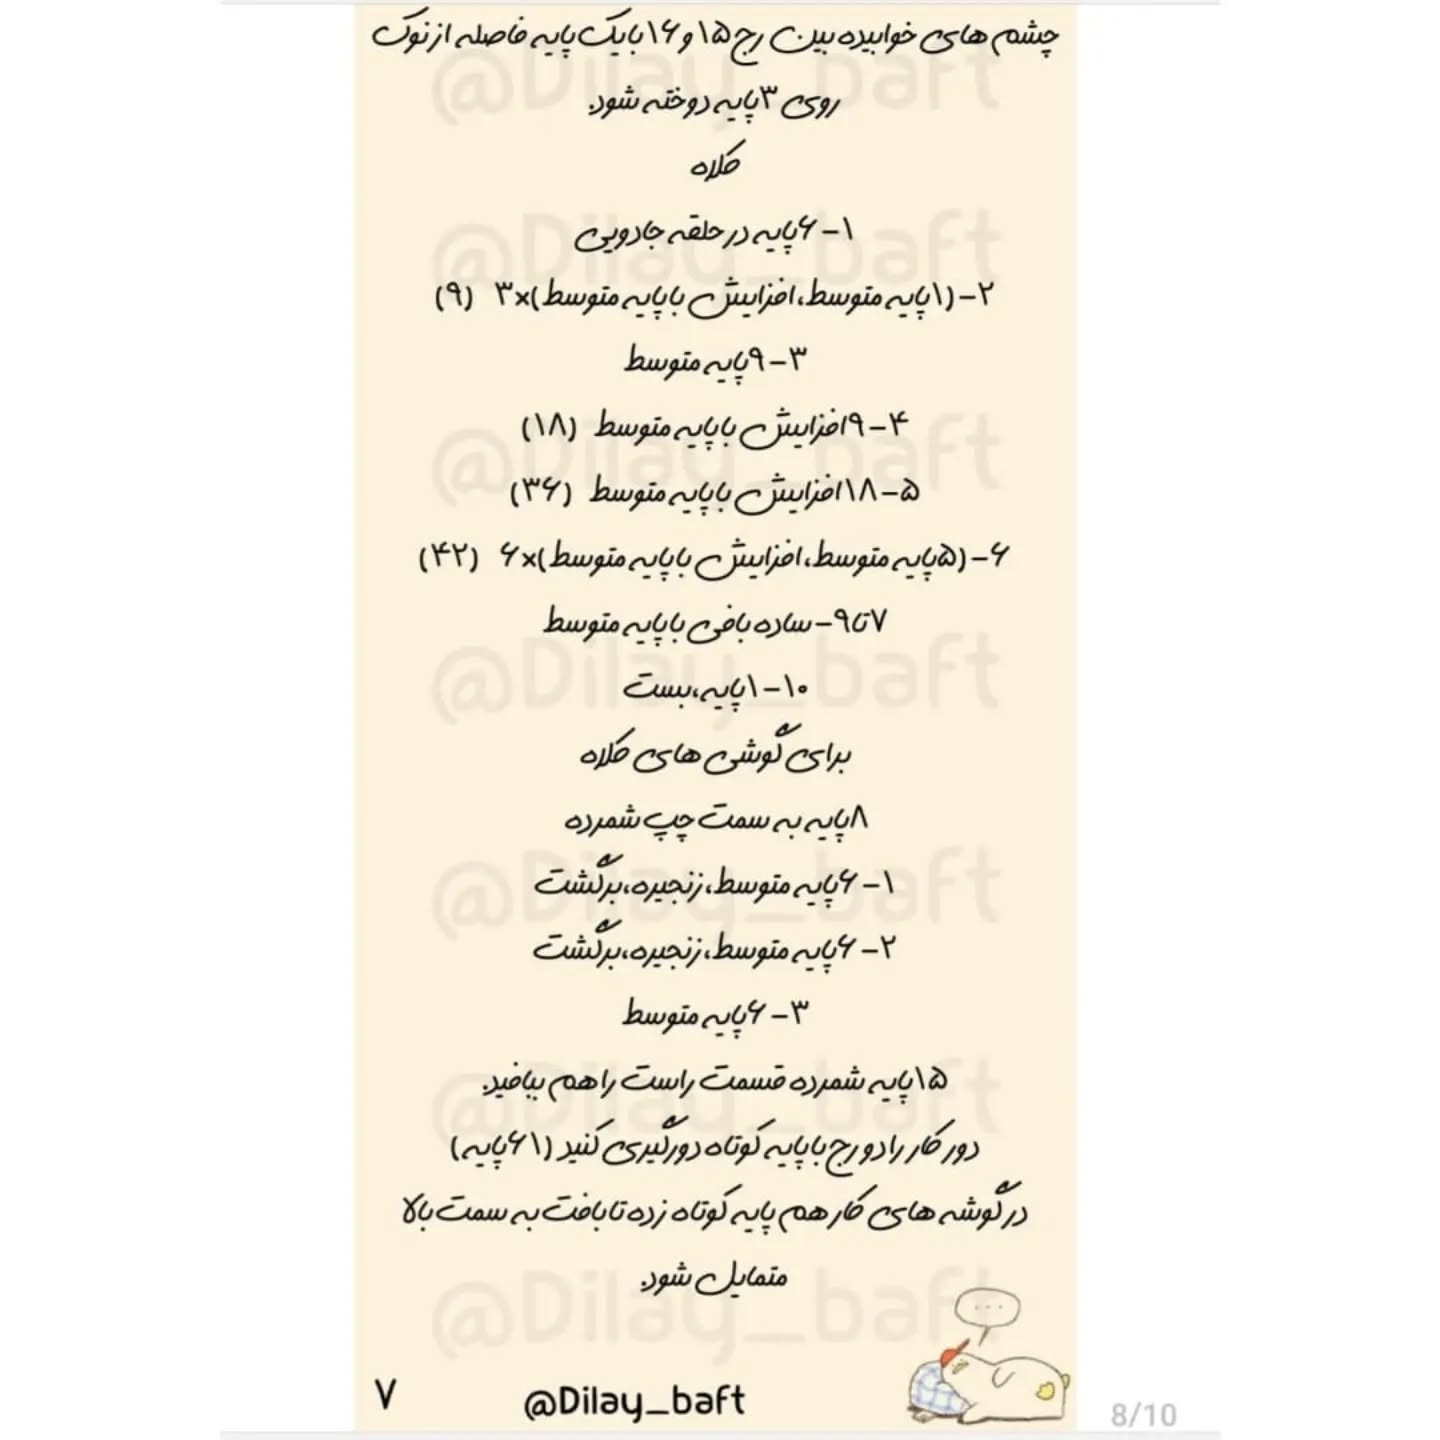 چشم های خوابیده بین رج ۱۵ و ۱۶ با یک پایه فاصله از نوک
روی ۳ پایه دوخته شود.
کلاه
۱- ۶ پایه در حلقه جادویی
۲- (۱ پایه متوسط، افزایش با پایه متوسط)×۳ (۹)
۳- ۹ پایه متوسط
۴- ۹ افزایش با پایه متوسط (۱۸)
۵- ۱۸ افزایش با پایه متوسط (۳۶)
۶- (۵ پایه متوسط، افزایش با پایه متوسط)×۶ (۴۲)
۷ تا ۹- ساده بافی با پایه متوسط
۱۰- ۱ پایه، بست
برای گوشی های کلاه
۸ پایه به سمت چپ شمرده
۱- ۶ پایه متوسط، زنجیره، برگشت
۲- ۶ پایه متوسط، زنجیره، برگشت
۳- ۶ پایه متوسط
۱۵ پایه شمرده قسمت راست را هم ببافید.
دور کار را دو رج با پایه کوتاه دورگیری کنید (۶۱ پایه)
در گوشه های کار هم پایه کوتاه زده تا بافت به سمت بالا
متمایل شود.
...
۷
@Dilay_baft
8/10